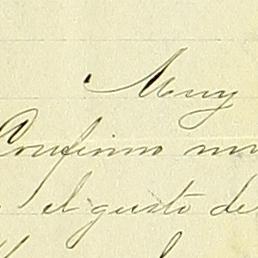 Muy
Confirmo mi
el gusto de